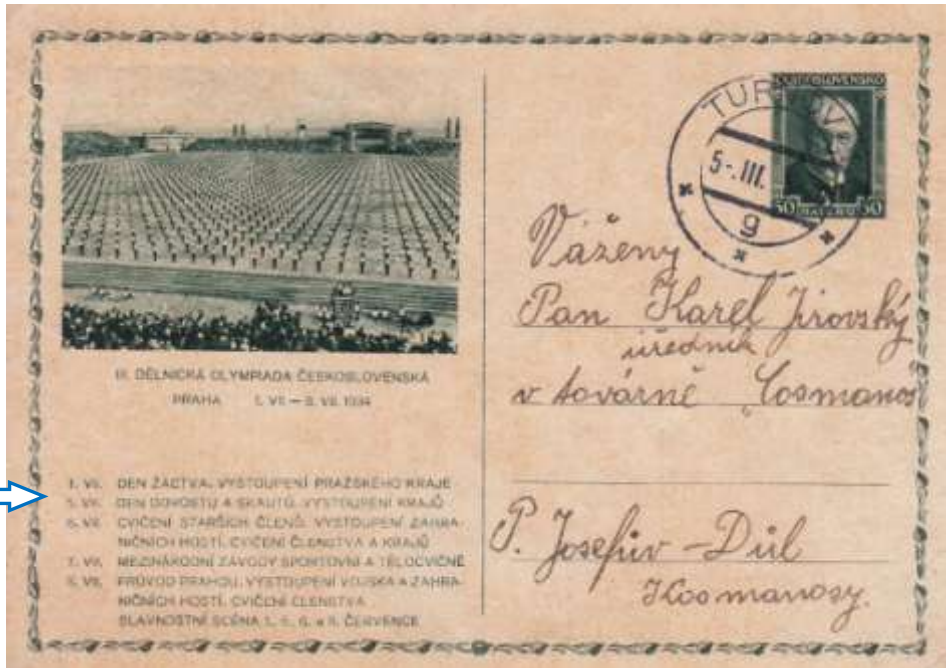 III. DĚLNICKÁ OLYMPIADA ČESKOSLOVENSKÁ
PRAHA 1. VII — 8. VII 1934
1. VII. DEN ŽACTVA. VYSTOUPENÍ PRAŽSKÉHO KRAJE
5. VII. DEN DOROSTU A SKAUTŮ. VYSTOUPENÍ KRAJŮ
6. VII. CVIČENÍ STARŠÍCH ČLENŮ. VYSTOUPENÍ ZAHRA-
NIČNÍCH HOSTÍ. CVIČENÍ ČLENSTVA A KRAJŮ
7. VII. MEZINÁRODNÍ ZÁVODY SPORTOVNÍ A TĚLOCVIČNÉ
8. VII. PRŮVOD PRAHOU. VYSTOUPENÍ VOJSKA A ZAHRA-
NIČNÍCH HOSTÍ. CVIČENÍ ČLENSTVA
SLAVNOSTNÍ SCÉNA 1., 5., 6. a 8. ČERVENCE
ČESKOSLOVENSKO
50 50
5-. III.
9
Váženy
Pan Karel Jirovský
úředník
v továrně "Cosmanos"
P. Josefův-Důl
Kosmanosy.